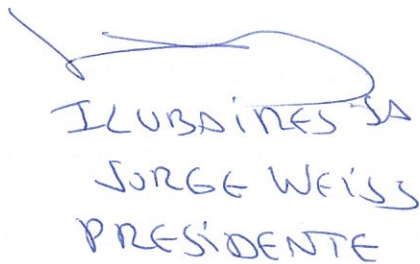 ILUBAIRES SA
JORGE WEISS
PRESIDENTE